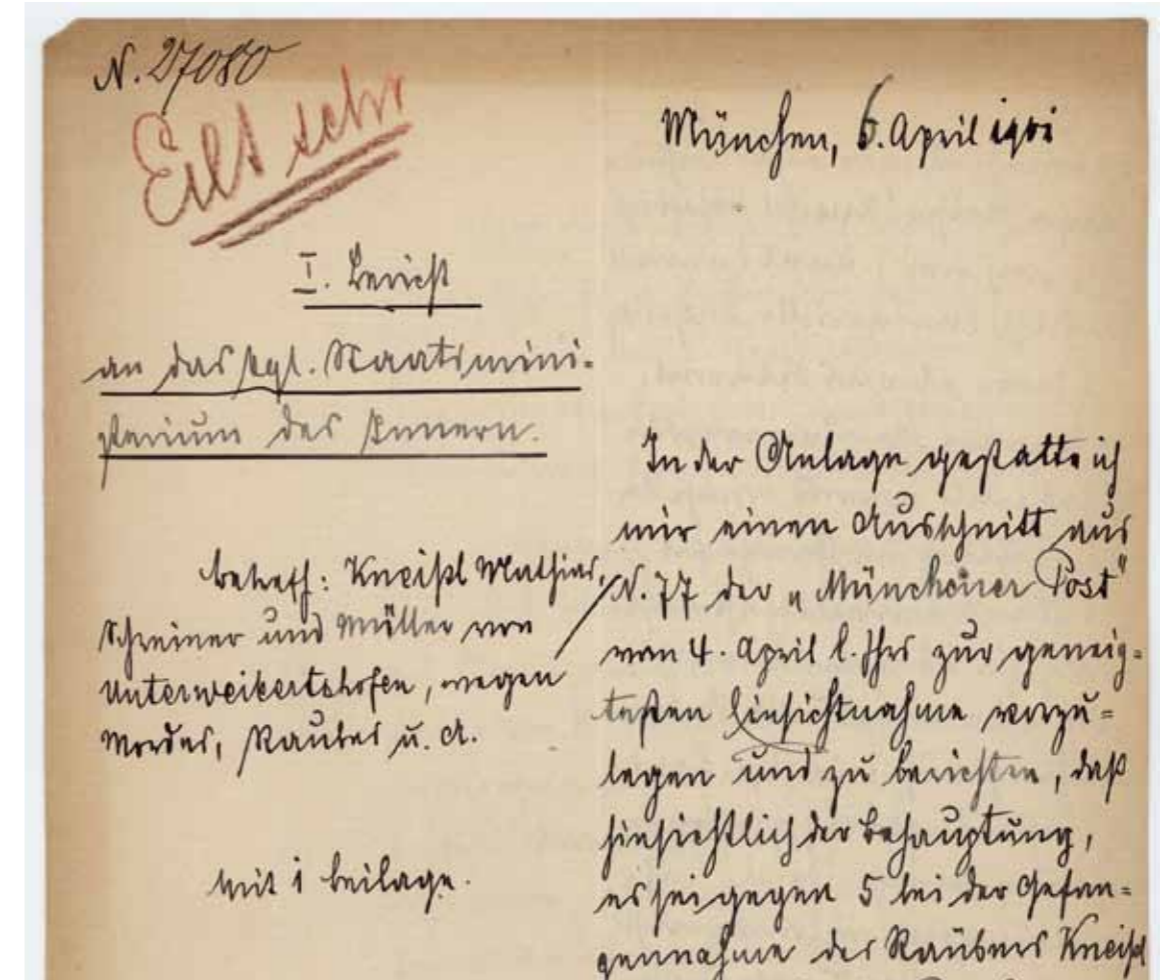 N. 27080
Eilt sehr
München, 6. April 1901
I. Bericht
an das kgl. Staatsmini-
sterium des Innern.
betreff: Kneißl Mathias,
Schreiner und Müller von
Unterweikertshofen, wegen
Mordes, Raubes u. A.
Mit 1 Beilage.
In der Anlage gestatte ich
mir einen Ausschnitt aus
N. 77 der „Münchener Post"
vom 4. April l. Jhrs zur geneig=
testen Einsichtnahme vorzu=
legen und zu berichten, daß
hinsichtlich der Behauptung,
es sei gegen 5 bei der Gefan=
gennahme des Räubers Kneißl